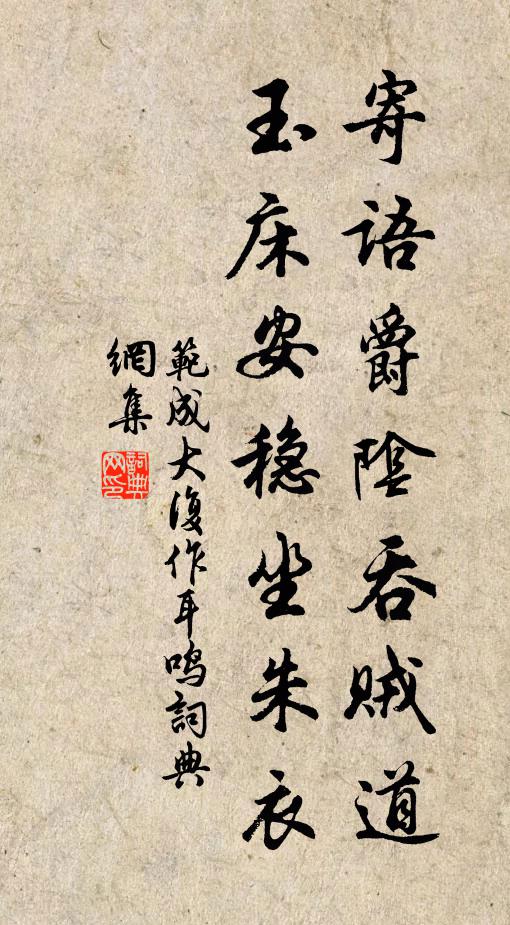 寄语爵阴吞贼道
玉床安稳坐朱衣
範成大復作耳鸣詞典
網集
詞典
网印